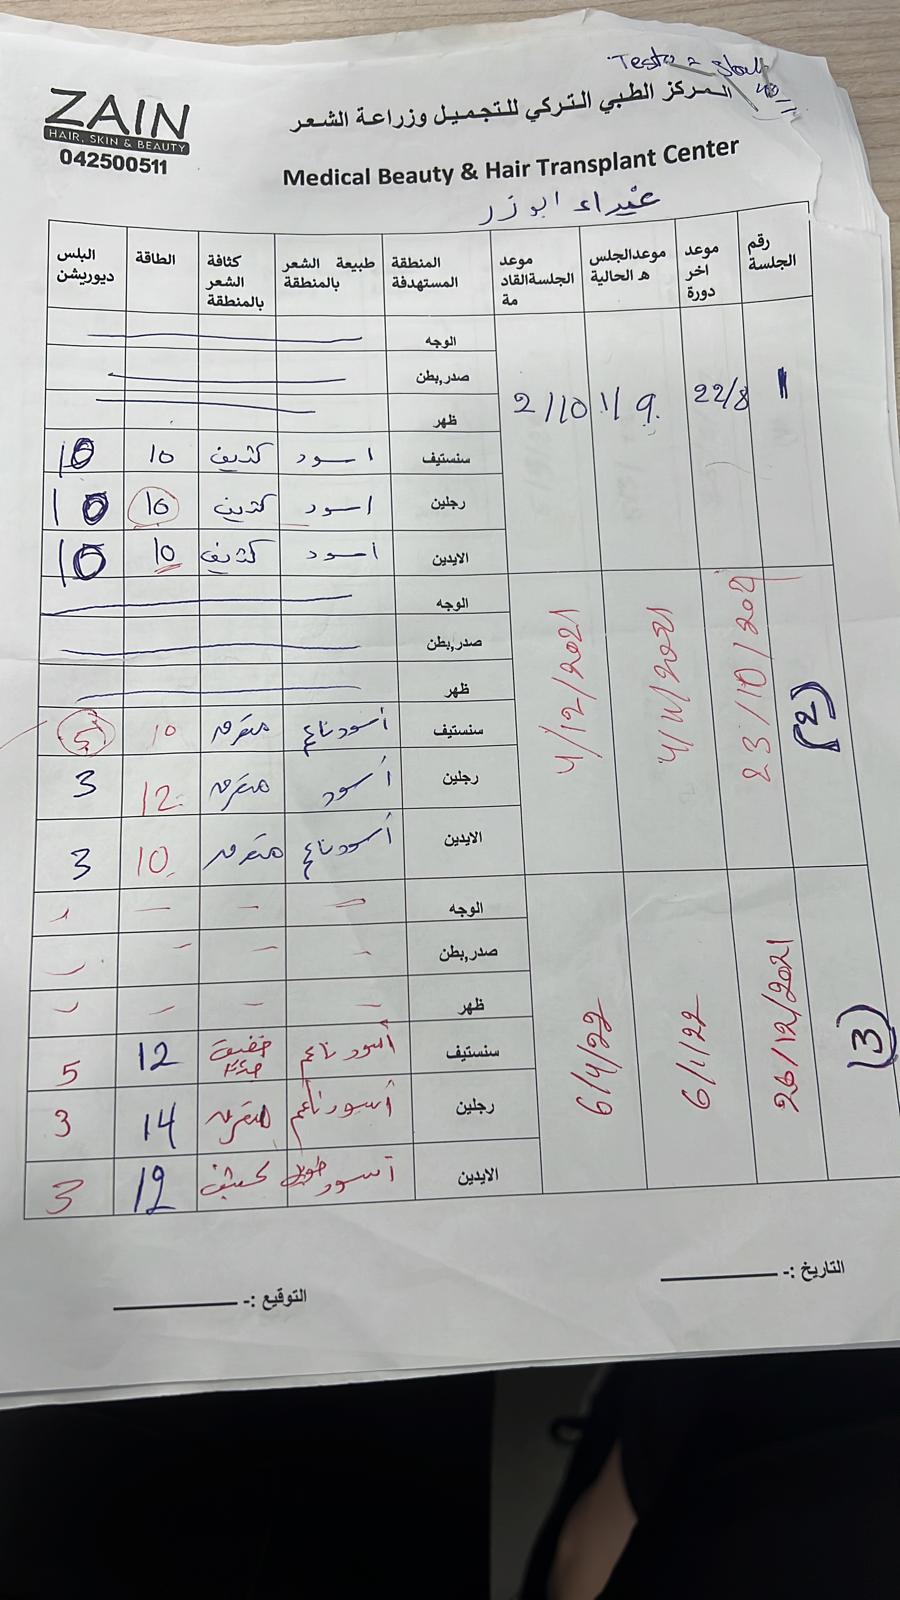 ZAIN
HAIR, SKIN & BEAUTY
042500511
المركز الطبي التركي للتجميل وزراعة الشعر
Medical Beauty & Hair Transplant Center
ابو زر
رقم الجلسة موعد اخر دورة موعدالجلس ه الحالية موعد الجلسةالقاد مة المنطقة المستهدفة طبيعة الشعر بالمنطقة كثافة الشعر بالمنطقة الطاقة البلس ديوريشن
1 22/8 1/9 2/10
الوجه
صدر,بطن
ظهر
سنستيف اسود كثيف 10 10
رجلين اسود كثيف 10 10
الايدين اسود كثيف 10 10
(2) 23/10/202 4/11/2021 4/12/2021
الوجه
صدر,بطن
ظهر
سنستيف أسود ناعم متفرقه 10 5
رجلين أسود متفرقه 12 3
الايدين أسود ناعم متفرقه 10 3
(3) 26/12/2021 6/1/22 6/4/22
الوجه
صدر,بطن
ظهر
سنستيف أسود ناعم خفيف 12 5
رجلين أسود ناعم متفرقه 14 3
الايدين أسود كثيف 12 3
التاريخ :-
التوقيع :-